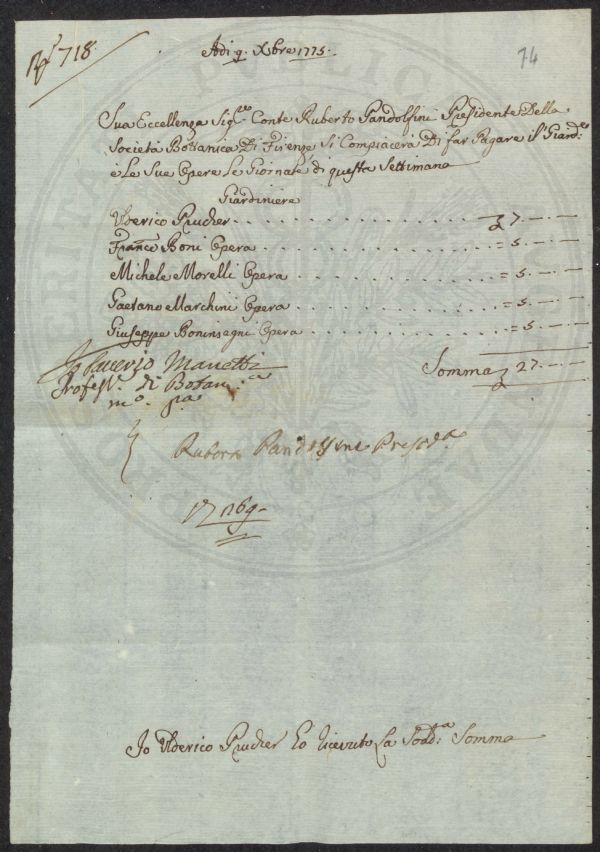 N.º 718.
Adi 9. Xbre 1775.
74
Sua Eccellenza Sig.re Conte Ruberto Pandolfini Presidente Della
Società Bottanica Di Firenze Si Compiacerà Di far Pagare il Giard.e
e Le Sue Opere Le Giornate di questa Settimana
Giardiniere
Ulderico Prucher . . . 7. — . —
Franc.o Boni Opera . . . = 5. — . —
Michele Morelli Opera . . . = 5. — . —
Gaetano Marchini Opera . . . = 5. — . —
Giuseppe Boninsegni Opera . . . = 5. — . —
Somma 27. — . —
Saverio Manetti
Profess.e di Botanica
m.o p.a
Ruberto Pandolfini Presid.
Io Ulderico Prucher Ho ricevuto La Sodd.a Somma